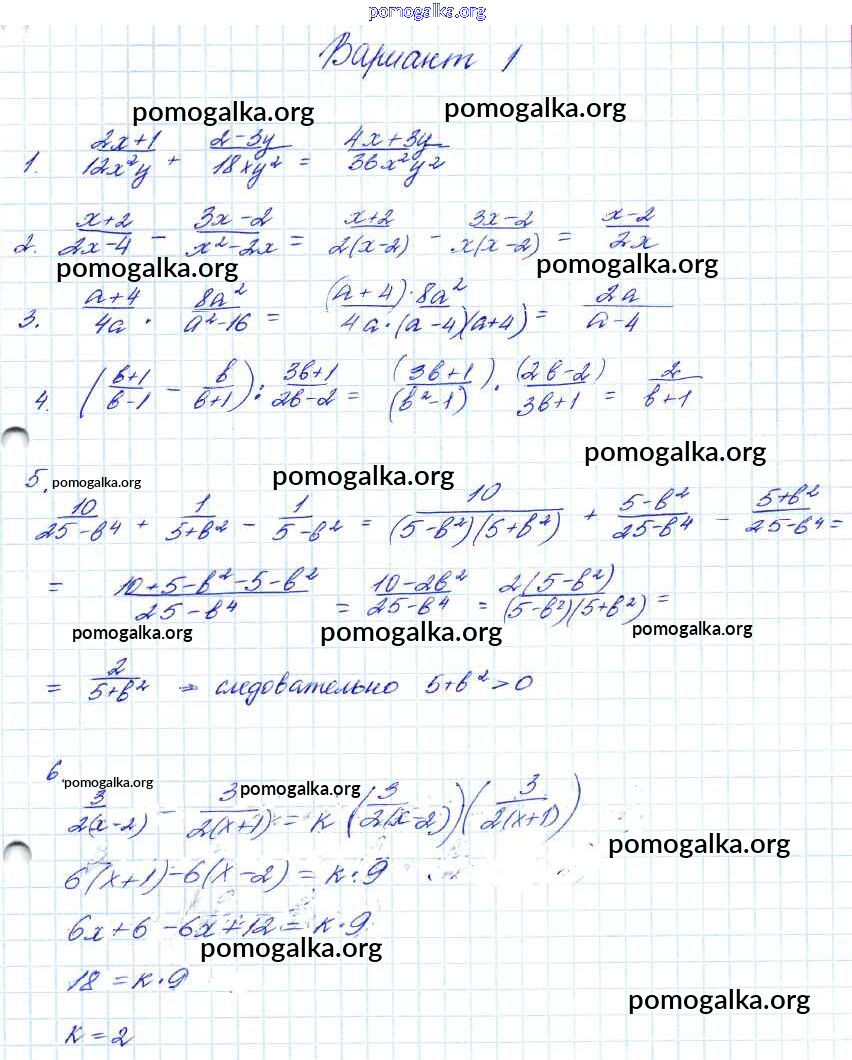 pomogalka.org
Вариант 1
pomogalka.org pomogalka.org
1. (2x+1)/(12x²y) + (2-3y)/(18xy²) = (4x+3y)/(36x²y²)
2. (x+2)/(2x-4) - (3x-2)/(x²-2x) = (x+2)/(2(x-2)) - (3x-2)/(x(x-2)) = (x-2)/(2x)
pomogalka.org pomogalka.org
3. (a+4)/(4a) · (8a²)/(a²-16) = ((a+4)·8a²)/(4a·(a-4)(a+4)) = (2a)/(a-4)
4. ((b+1)/(b-1) - b/(b+1)) : (3b+1)/(2b-2) = ((3b+1)/(b²-1)) · (2b-2)/(3b+1) = 2/(b+1)
pomogalka.org
5. pomogalka.org pomogalka.org
10/(25-b⁴) + 1/(5+b²) - 1/(5-b²) = 10/((5-b²)(5+b²)) + (5-b²)/(25-b⁴) - (5+b²)/(25-b⁴) =
= (10+5-b²-5-b²)/(25-b⁴) = (10-2b²)/(25-b⁴) = (2(5-b²))/((5-b²)(5+b²)) =
pomogalka.org pomogalka.org pomogalka.org
= 2/(5+b²) ⇒ следовательно 5+b²>0
6. pomogalka.org pomogalka.org
3/(2(x-2)) - 3/(2(x+1)) = к (3/(2(x-2))) (3/(2(x+1)))
pomogalka.org
6(x+1)-6(x-2) = к·9
6x+6-6x+12 = к·9
pomogalka.org
18 = к·9
pomogalka.org
к = 2